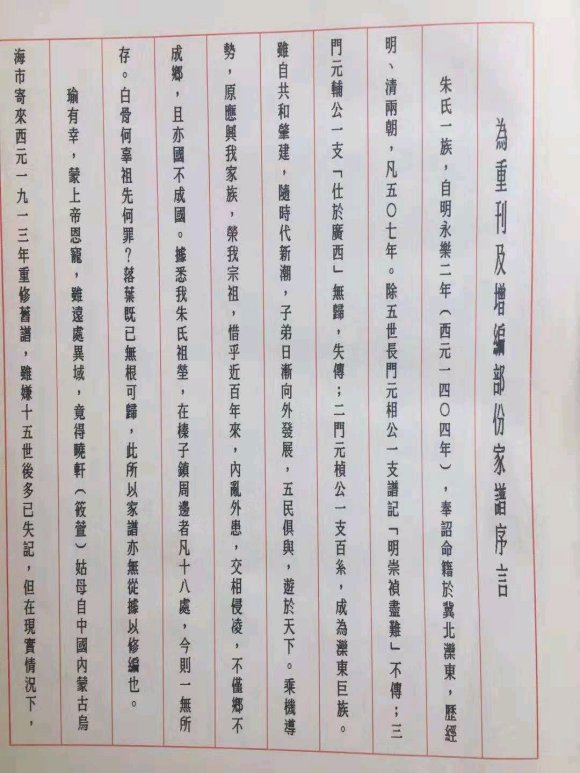 為重刊及增編部份家譜序言
朱氏一族，自明永樂二年（西元一四〇四年），奉詔命籍於冀北灤東，歷經
明、清兩朝，凡五〇七年。除五世長門元相公一支譜記「明崇禎盡難」不傳；三
門元輔公一支「仕於廣西」無歸，失傳；二門元楨公一支百系，成為灤東巨族。
雖自共和肇建，隨時代新潮，子弟日漸向外發展，五民俱與，遊於天下。乘機導
勢，原應興我家族，榮我宗祖，惜乎近百年來，內亂外患，交相侵凌，不僅鄉不
成鄉，且亦國不成國。據悉我朱氏祖塋，在榛子鎮周邊者凡十八處，今則一無所
存。白骨何辜祖先何罪？落葉既已無根可歸，此所以家譜亦無從據以修編也。
瑜有幸，蒙上帝恩寵，雖遠處異域，竟得曉軒（筱萱）姑母自中國內蒙古烏
海市寄來西元一九一三年重修舊譜，雖嫌十五世後多已失記，但在現實情況下，